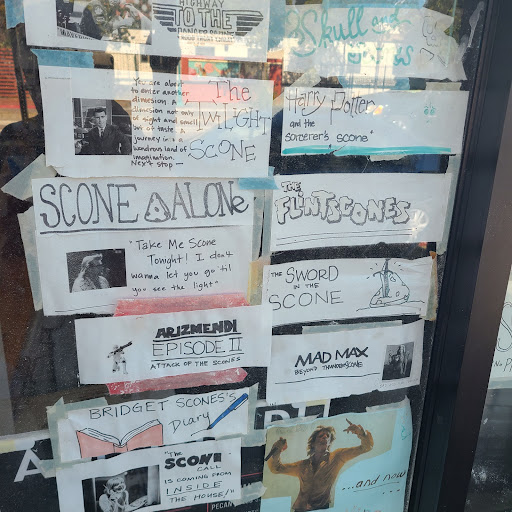 HIGHWAY
TO THE
Skull and
The
TWILIGHT
SCONE
You are about
to enter another
dimension. A
dimension not only
of sight and smell
but of taste. A
journey into a
wondrous land of
imagination.
Next stop—
Harry Potter
and the
Sorcerer's scone"
SCONE ALONe
"Take Me Scone
Tonight! I don't
wanna let you go 'til
you see the light"
The
FLINTSCONES
THE SWORD
IN THE
SCONE
ARIZMENDI
EPISODE II
ATTACK OF THE SCONES
MAD MAX
BEYOND THUNDERSCONE
BRIDGET SCONES's
Diary
"The
SCONE
CALL
IS COMING FROM
INSIDE
THE HOUSE!"
...and now
PECAN